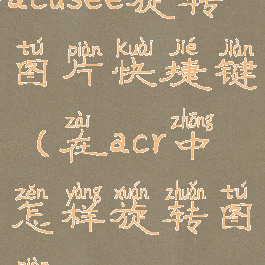 acdsee旋转
tú piàn kuài jié jiàn
图片快捷键
zài zhōng
(在acr中
zěn yàng xuán zhuǎn tú
怎样旋转图
piàn